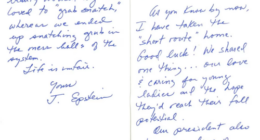 loved to "grab snatch"
whereas we ended
up snatching grub in
the mess halls of the
system.
Life is unfair.
Yours
J. Epstein
As you know by now,
I have taken the
"short route" home.
Good luck! We shared
one thing... our love
& caring for young
ladies and the hope
they'd reach their full
potential.
Our president also